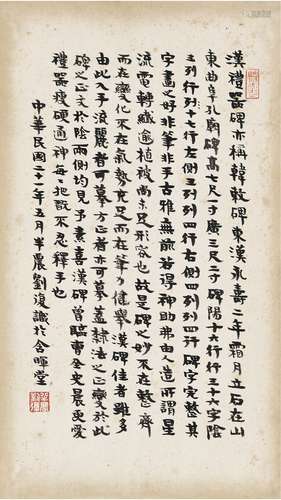 漢禮器碑亦稱韓敕碑東漢永壽二年霜月立石在山
東曲阜孔廟碑高七尺一寸廣三尺二寸碑陽十六行行三十六字陰
三列行列十七行左側三列列四行右側四列列四行碑字完整其
字畫之好非筆非手古雅無前若得神助弗由人造所謂星
流電轉纖逾植髮尚未足形容也故是碑妙不在整齊
而在變化不在氣勢充足而在筆力健舉漢碑佳者雖多
由此入手流麗者可摹方正者亦可摹蓋隸法之正變於此
碑之正文於陰兩側均見予素喜漢碑曾臨曹全史晨更愛
禮器瘦硬通神每一把翫不忍釋手也
中華民國二十一年五月半農劉復識於含暉堂